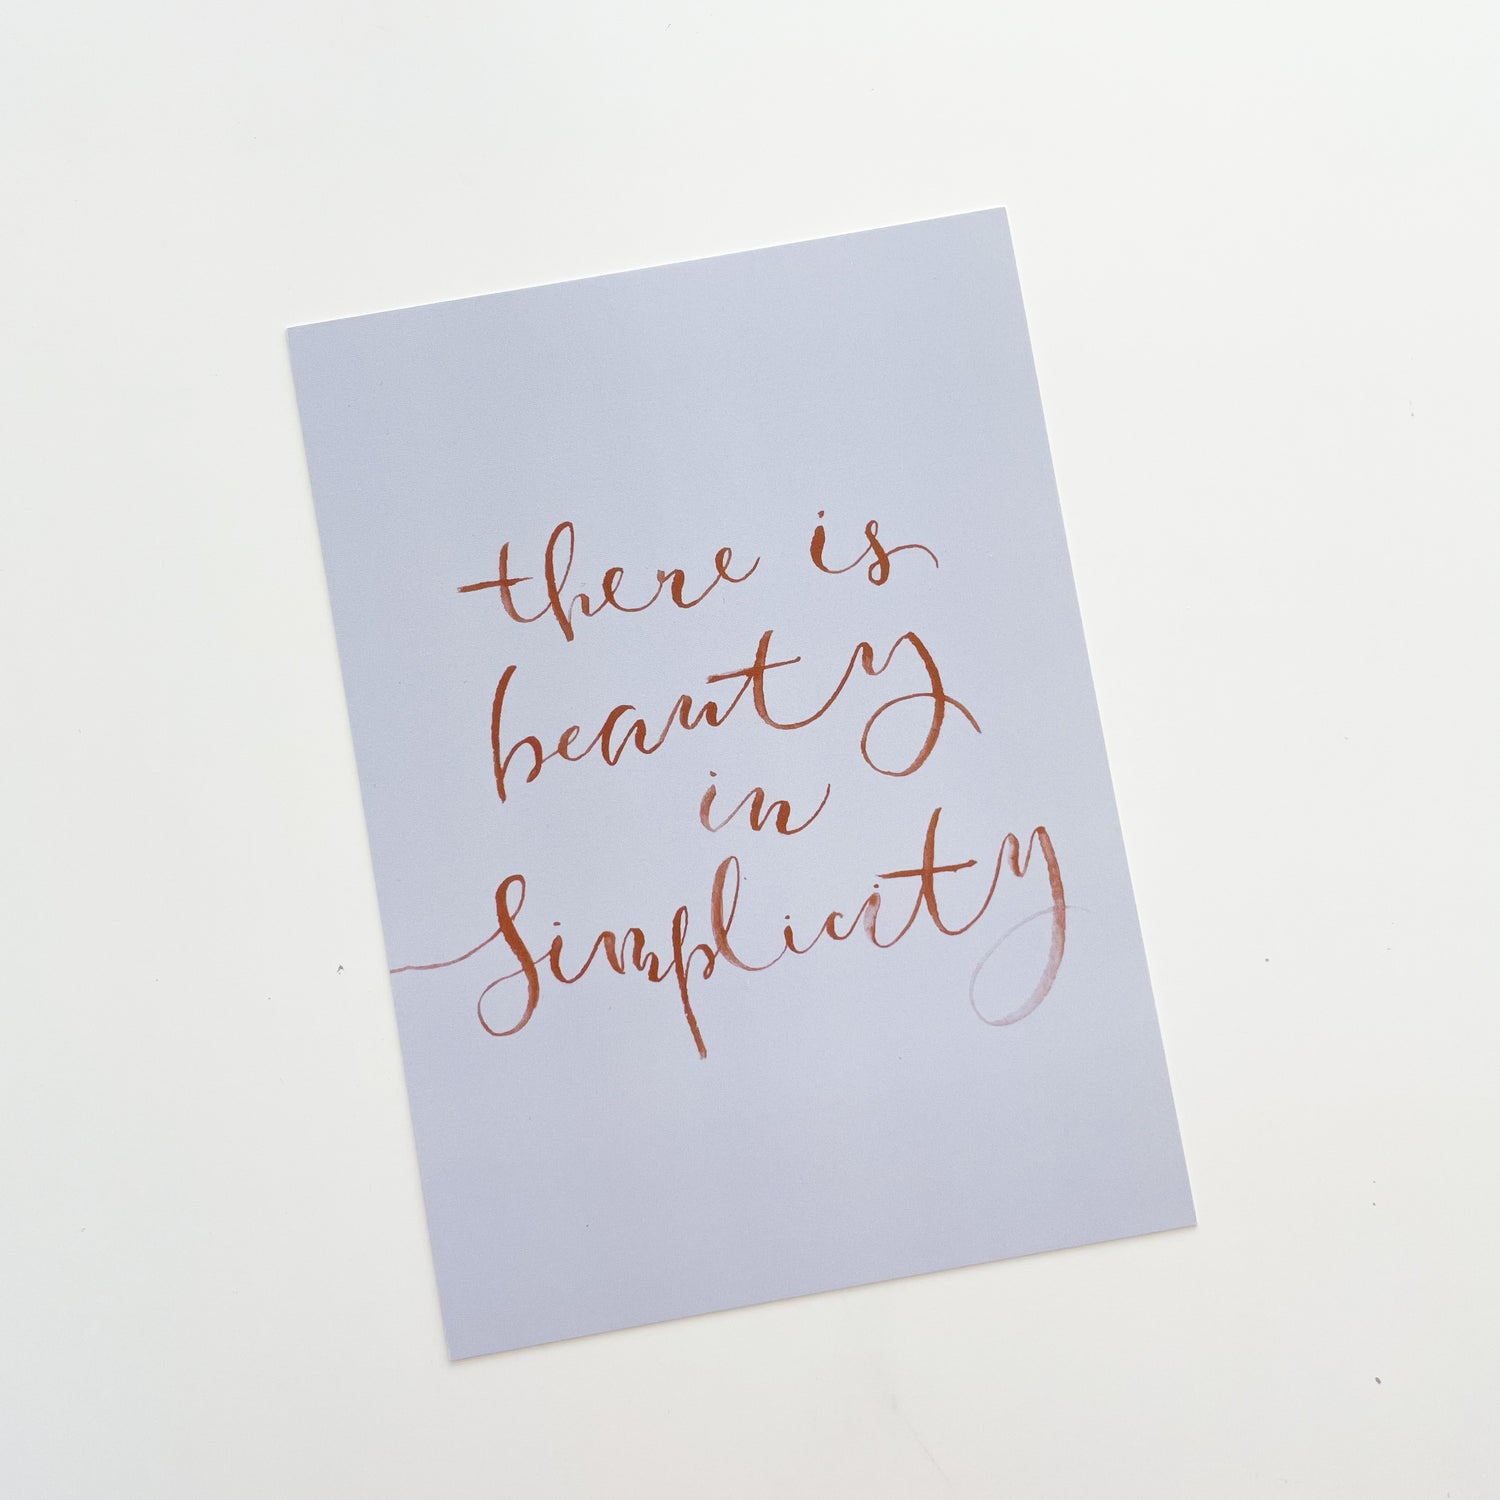 there is
beauty
in
simplicity